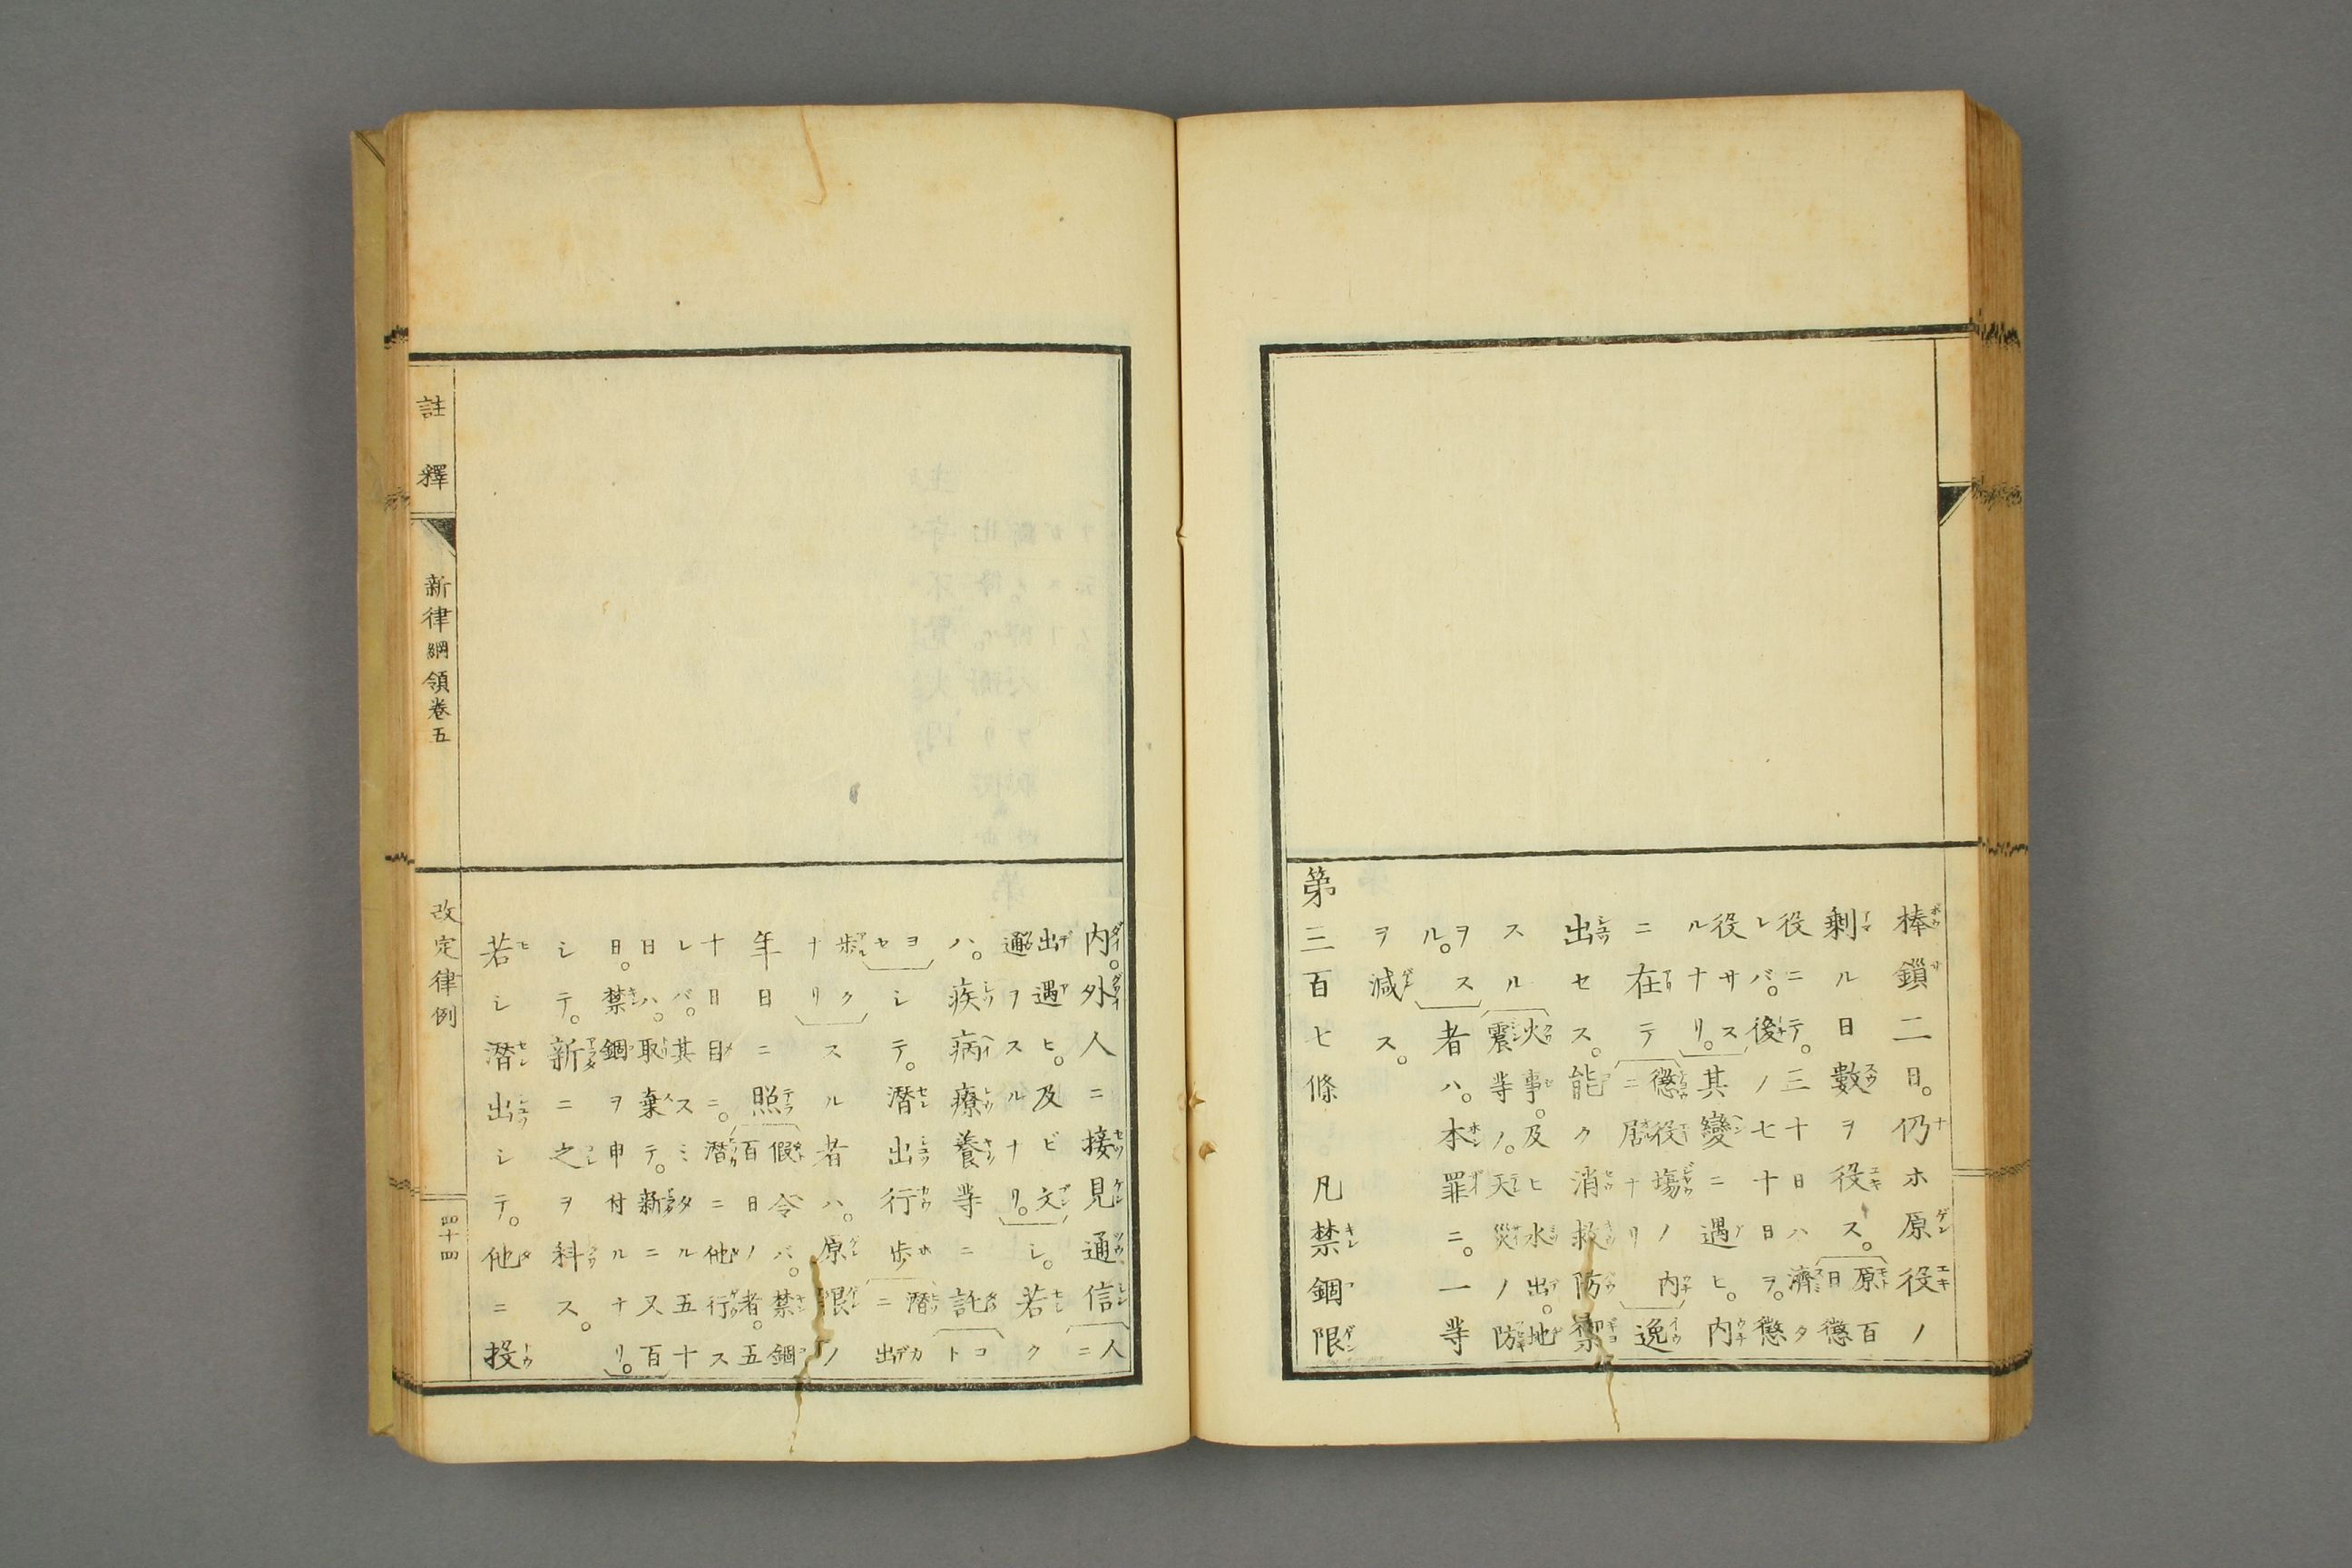 棒鎖二日。仍ホ原役ノ
剰ル日數ヲ役ス。原百
日懲
役ニテ。三十日ハ濟タ
レバ。後ノ七十日ヲ。懲
役サス
ルナリ。其變ニ遇ヒ。内
ニ在テ懲役場ノ内
ニ居ナリ逸
出セス。能ク消救防禦
スル火事。及ヒ水出。地
震等ノ。天災ノ防
ヲス
ル。者ハ。本罪ニ。一等
ヲ減ス。
第三百七條 凡禁錮限
内。外人ニ接見通信人
ニ
出遇ヒ。及ビ文
通ヲスルナリ。シ。若ク
ハ。疾病療養等ニ託コ
ト
ヨ
セシテ。潜出行歩潜カ
ニ出
歩ク
ナリスル者ハ。原限ノ
年日ニ照假令バ。禁錮
百日ノ者。五
十日目ニ。潜ニ他行ス
レバ。其スミタル五十
日ハ。取棄テ。新ニ又百
日。禁錮ヲ申付ルナリ。
シテ。新ニ之ヲ科ス。
若シ潜出シテ。他ニ投
註釋 新律綱領卷五 改定律例 四十四